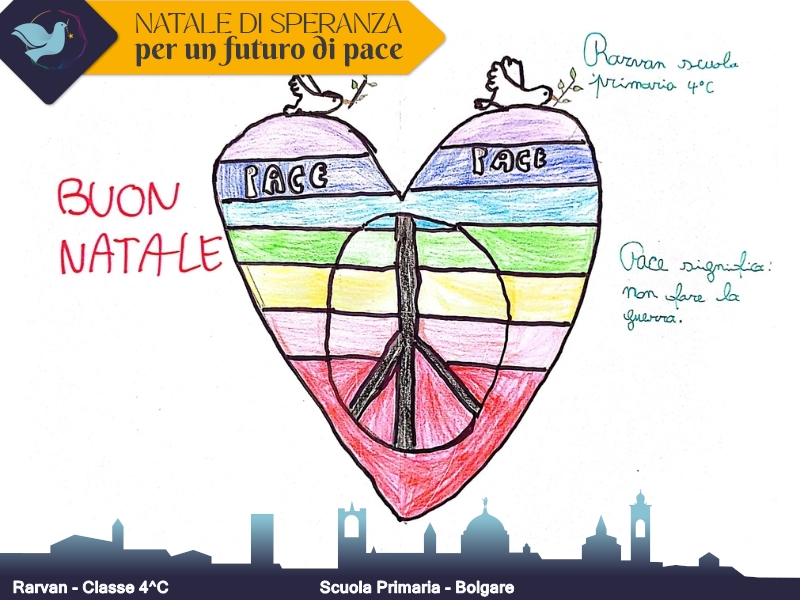 NATALE DI SPERANZA
per un futuro di pace
Rarvan scuola
primaria 4°C
PACE PACE
BUON
NATALE
Pace significa:
non fare la
guerra.
Rarvan - Classe 4^C Scuola Primaria - Bolgare